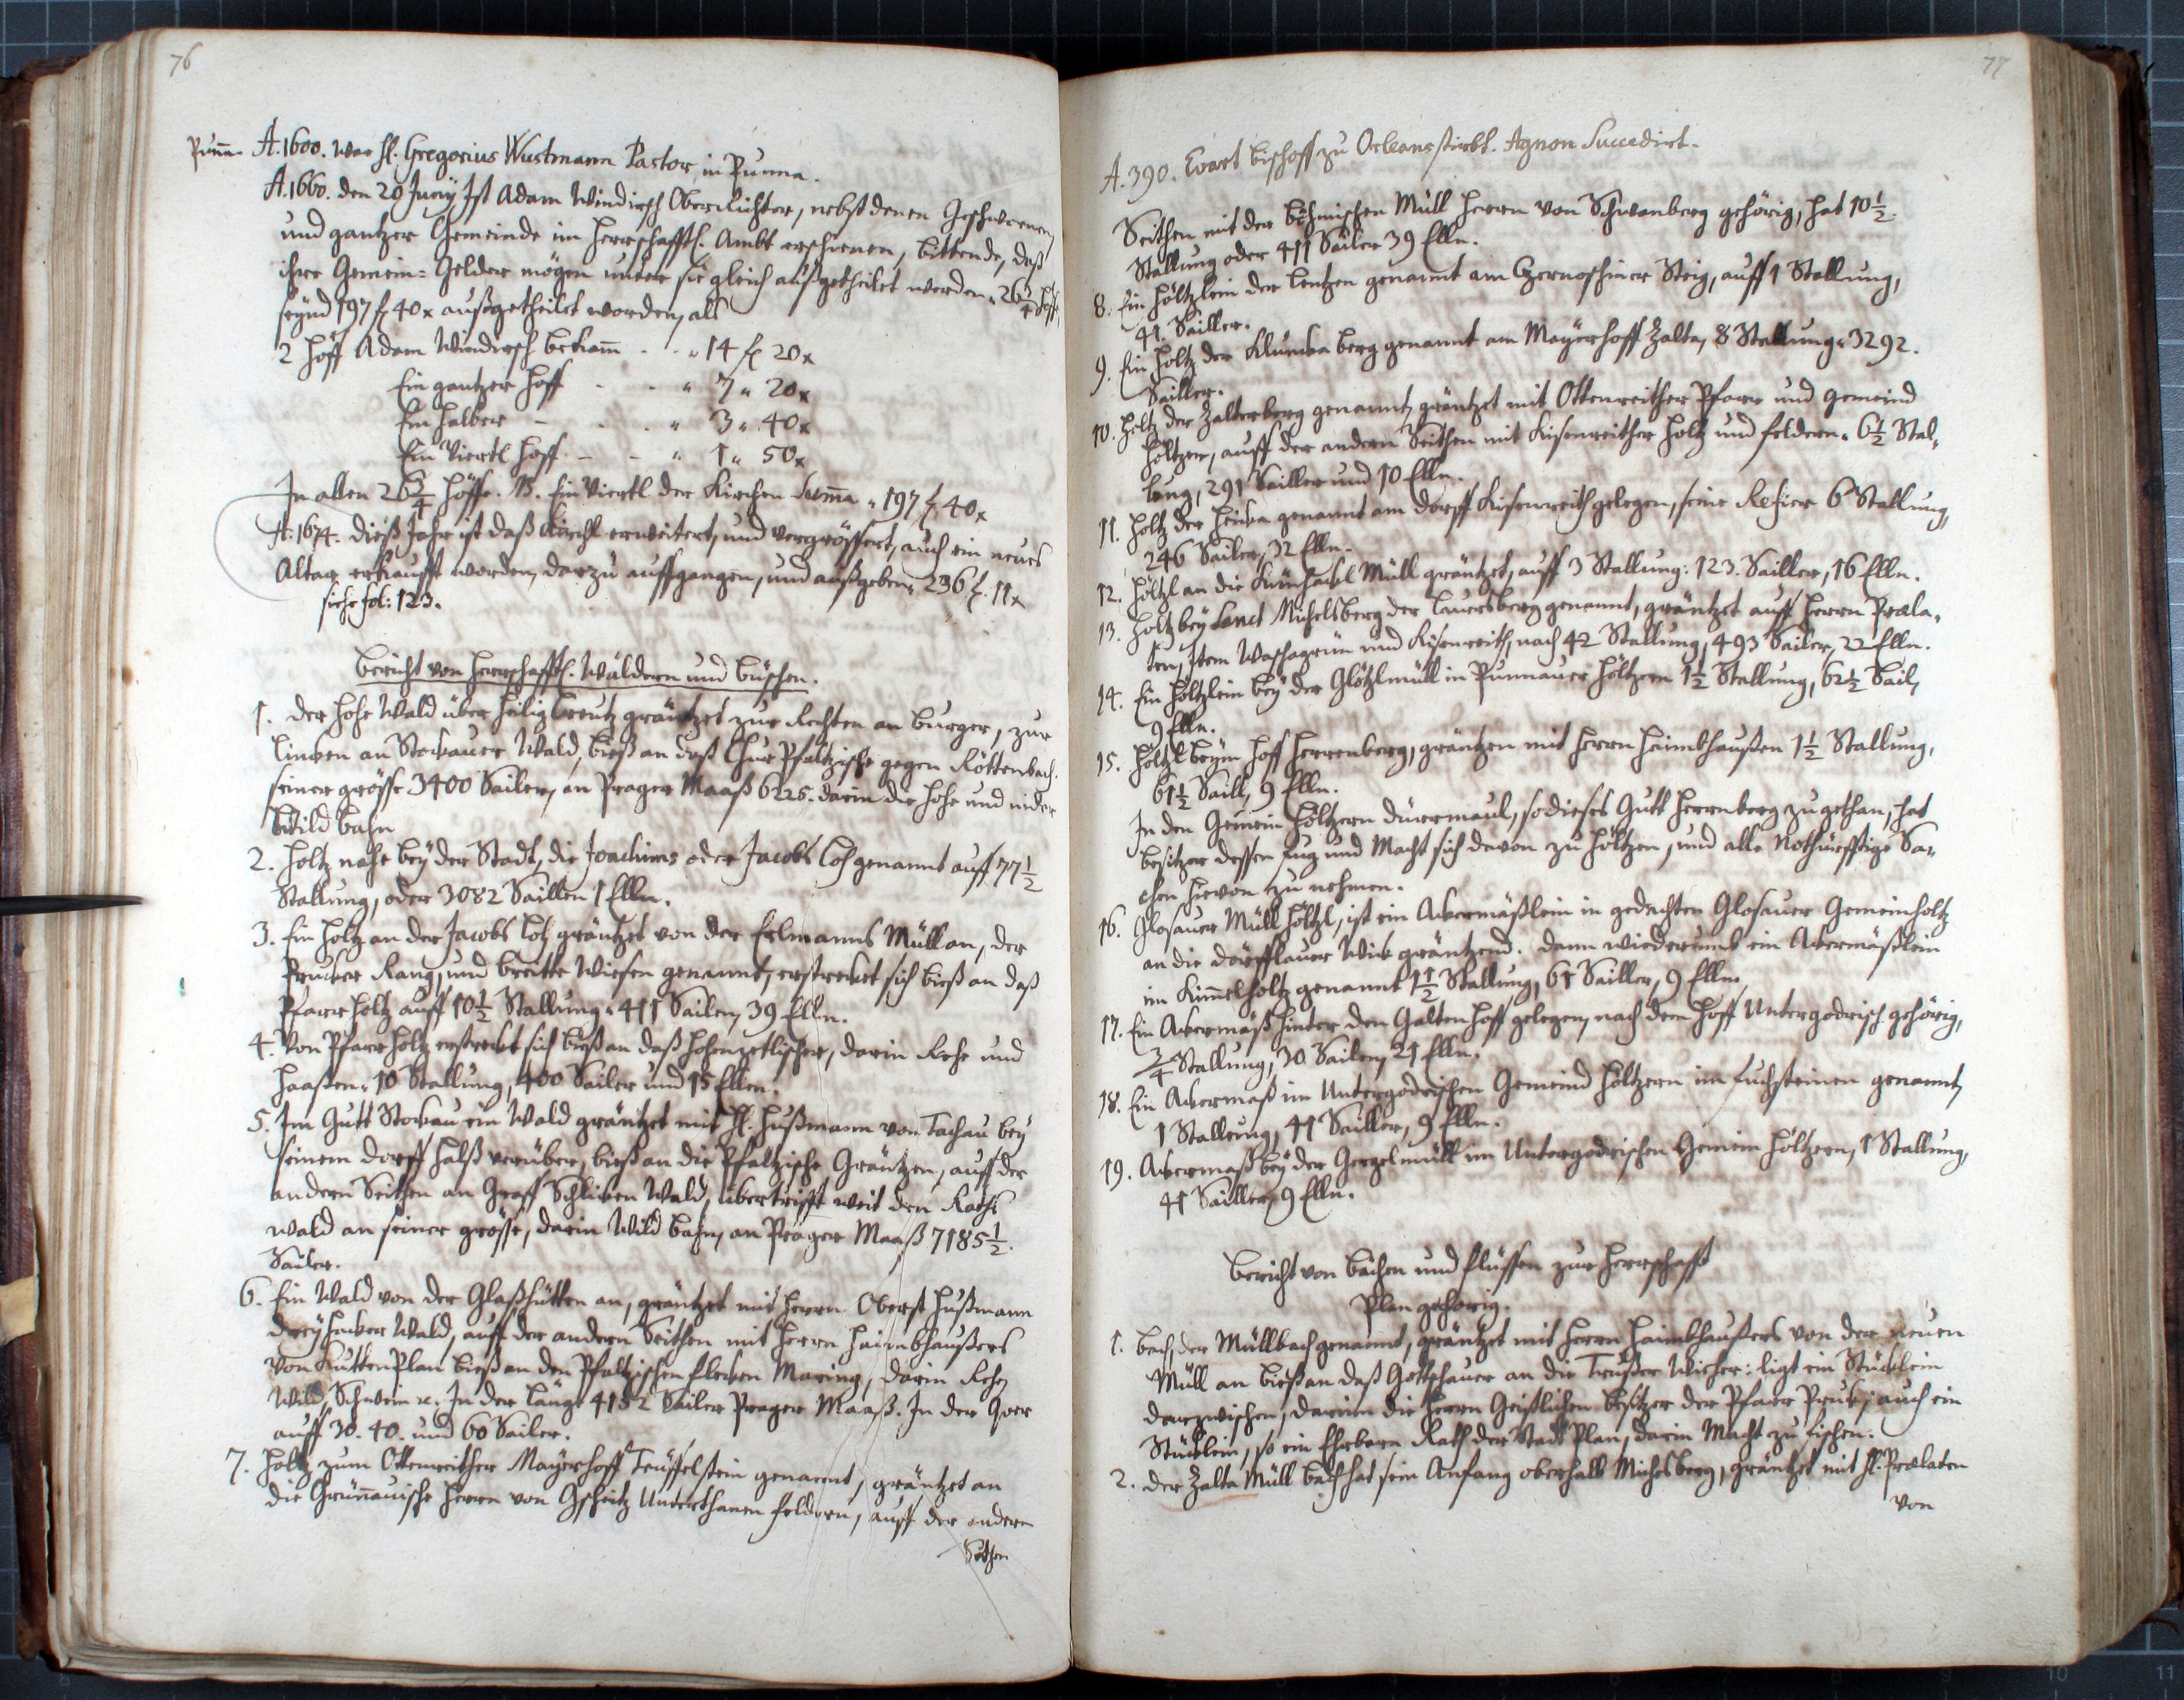 76
Punna A. 1600. War H. Gregorius Wustmann Pastor in Punna.
A. 1660. den 20 Junÿ Ist Adam Windirsch Oberrichter, nebst denen Geschwornen,
und gantzer Gemeinde im Herrschafftl. Ambt erschienen, bittende, daß
ihre Gemein-Gelder mögen unter sie gleich außgetheilet werden, 26 3/4 Höff,
seynd 197 f 40 x außgetheilet worden, als
2 Höff Adam Windirsch bekam̄ - - " 14 f 20 x
Ein gantzer Hoff - - " 7 " 20 x
Ein halber - - " 3 " 40 x
Ein Viertl Hoff - - " 1 " 50 x
In allen 26 3/4 Höffe. NB. Ein Viertl der Kirchen Sum̄a " 197 f. 40 x
A: 1674. dieß Jahr ist daß Kirchl erweitert, und vergrössert, auch ein neues
Altar erkaufft worden, darzu auffgangen, und außgeben " 236 f. 11 x
siehe fol: 123.
Bericht von Herrschafftl. Wäldern und Büschen.
1. Der hohe Wald über Heilig Creutz gräntzet zur Rechten an Burger, zur
Lincken an Stockauer Wald, bieß an daß Chur Pfältzische gegen Röttenbach.
seiner grösse 3400 Sailer, an Prager Maaß 6225. darin die hohe und nider
Wild bahn
2. Holtz nahe beÿ der Stadt, die Joachims oder Jacobs Loh genannt auff 77 1/2
Stallung, oder 3082 Sailler 1 Elln.
3. Ein Holtz an der Jacobs Loh gräntzet von der Erlmanns Müll an, der
Prucker Rang, und breitte Wiesen genannt, erstrecket sich bieß an daß
Pfarr Holtz auff 10 1/2 Stallung " 411 Sailer, 39 Elln.
4. Von Pfarr Holtz erstrecket sich bieß an daß Hohenzetlischer, darin Rehe und
Haaßen, 10 Stallung, 400 Sailer und 15 Ellen.
5. Im Gutt Stockau ein Wald gräntzet mit H. Hußmann von Tachau beÿ
seinem dorff Halß verüber, bieß an die Pfaltzische Gräntzen, auff der
andern Seithen an Graff Schlicken Wald, übertrifft weit den Raths
wald an seiner grösse, darin Wild bahn, an Prager Maaß 7185 1/2.
Sailer.
6. Ein Wald von der Glaßhütten an, gräntzet mit Herrn Oberst Hußmann
dreÿhacker Wald, auff der andern Seithen mit Herrn Haimbhaußers
von KuttenPlan bieß an den Pfaltzischen flecken Maring, darin Rehe,
Wild, Schwein ec. In der Länge 4152 Sailer Prager Maaß. In der Quer
auff 30. 40. und 60 Sailer.
7. Holtz zum Ottenreither Mayerhoff Teüffelstein genannt, gräntzet an
die Grünnauische Herrn von Unterthanen feldern, auff der andern
Seithen
77
A. 390. Evart Bischoff zu Orleans stirbt. Agnon Succedirt.
Seithen mit der Böhmischen Müll Herrn von Schwanberg gehörig, hat 10 1/2.
Stallung oder 411 Sailer 39 Elln.
8. Ein Höltzlein der Lentzen genannt am Czernoschiner Steig, auff 1 Stallung,
41 Sailler.
9. Ein Holtz der Klumka berg genannt am Mayerhoff Zalta, 8 Stallung " 3292.
Sailler.
10. Holtz der Zalterberg genannt, gräntzet mit Ottenreither Pfarr und gemeind
Höltzer, auff der andern Seithen mit Kisenreither Holtz und feldern " 6 1/2 Stal-
lung, 291 Sailler und 10 Elln.
11. Holtz der genannt am dorff Kisenreith gelegen, seine Refier 6 Stallung,
246 Sailer, 32 Elln.
12. Höltzl an die Müll gräntzet, auff 3 Stallung: 123. Sailler, 16 Elln.
13. Holtz beÿ Sanct Michelsberg der genannt, gräntzet auff Herrn Praela-
ten, Item Waschagrün und Kisenreith, nach 42 Stallung, 493 Sailer, 22 Elln.
14. Ein Höltzlein beÿ der Glötzlmüll in Punnauer Höltzern 1 1/2 Stallung, 62 1/2 Sail,
9 Elln.
15. Höltzl beÿm Hoff Herrenberg, gräntzen mit Herrn Haimbhaußen 1 1/2 Stallung,
61 1/2 Saill, 9 Elln.
In den Gemein Höltzern dürrmaul, so dieses Gutt Herrnberg zu gethan, hat
besitzer dessen fug und Macht sich davon zu höltzen, und alle Nothürfftige Sa-
chen hievon zu nehmen.
16. Glosauer Müll Höltzl, ist ein Ackermäßlein in gedachten Glosauer Gemeinholtz
an die dörfflauer Wies gräntzend. dann wiederumb ein Ackermäßlein
im Kim̄elholtz genannt 1 1/2 Stallung, 61 Sailler, 9 Elln.
17. Ein Ackermäß hinter den Galtenhoff gelegen, nach dem Hoff Untergodrisch gehörig,
3/4 Stallung, 30 Sailer, 21 Elln.
18. Ein Ackermaß im Untergodrischen Gemeind Höltzern im fuchsteinen genannt,
1 Stallung, 41 Sailler, 9 Elln.
19. Ackermaß beÿ der Gergelmüll im Untergodrischen Gemein Höltzern, 1 Stallung,
41 Sailler, 9 Elln.
Bericht von Bächen und Flüssen zur Herrschafft
Plan gehörig.
1. Bach, der Müllbach genannt, gräntzet mit Herrn Haimbhaußers von der neuen
Müll an bieß an daß Gottschauer an die Teußer Wieher: ligt ein Stücklein
darzwischen, darein die Herrn Geistlichen besitzer der Pfarr Pruk, auch ein
Stücklein, so ein Ehrbarn Rath der Stadt Plan, darin Macht zu fischen.
2. Der Zalta Müll bach hat sein Anfang oberhalb Michelsberg, gräntzet mit H. Praelaten
von